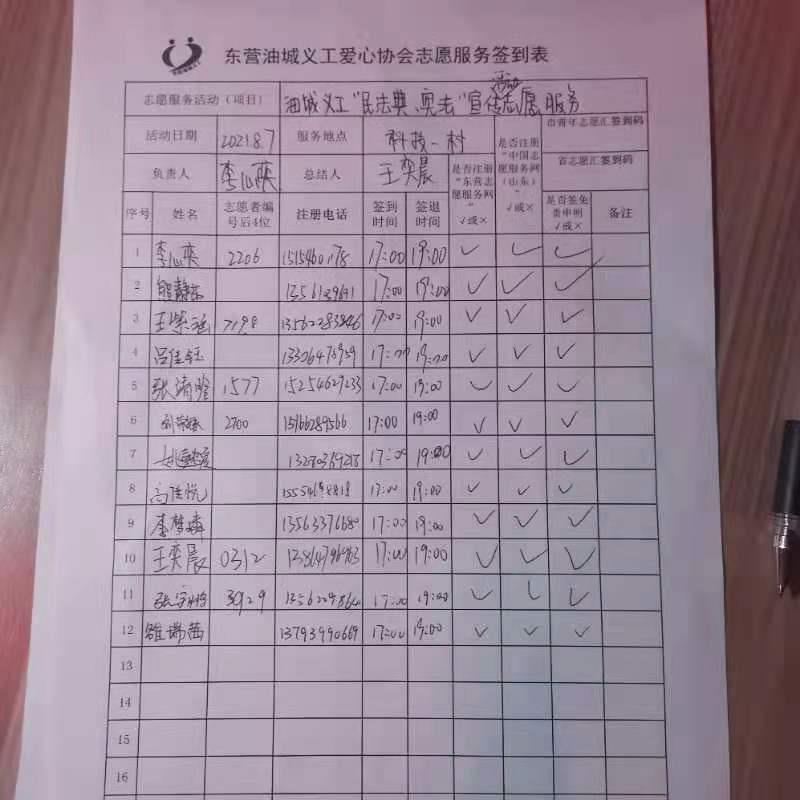 东营油城义工爱心协会志愿服务签到表
志愿服务活动（项目） 油城义工“民法典、宪法”宣传活动志愿服务
活动日期 2021.8.7 服务地点 科技一村 市青年志愿汇签到码
负责人 李心蕊 总结人 王奕晨 省志愿汇签到码
序号 姓名 志愿者编号后4位 注册电话 签到时间 签退时间 是否注册“东营志愿服务网” √或× 是否注册“中国志愿服务网（山东） √或× 是否签免责申明 √或× 备注
1 2206 17:00 19:00 ✓ ✓ ✓
2 17:00 19:00 ✓ ✓ ✓
3 王紫 7198 13562283846 17:00 19:00 ✓ ✓ ✓
4 吕佳钰 17:00 19:00 ✓ ✓ ✓
5 张清 1577 15254629233 17:00 19:00 ✓ ✓ ✓
6 2700 15766289566 17:00 19:00 ✓ ✓ ✓
7 17:00 19:00 ✓ ✓ ✓
8 高佳悦 17:00 19:00 ✓ ✓ ✓
9 李梦 13563376680 17:00 19:00 ✓ ✓ ✓
10 王奕晨 0312 17:00 19:00 ✓ ✓ ✓
11 张宇 3929 17:00 19:00 ✓ ✓ ✓
12 瑞茜 13793990669 17:00 19:00 ✓ ✓ ✓
13
14
15
16